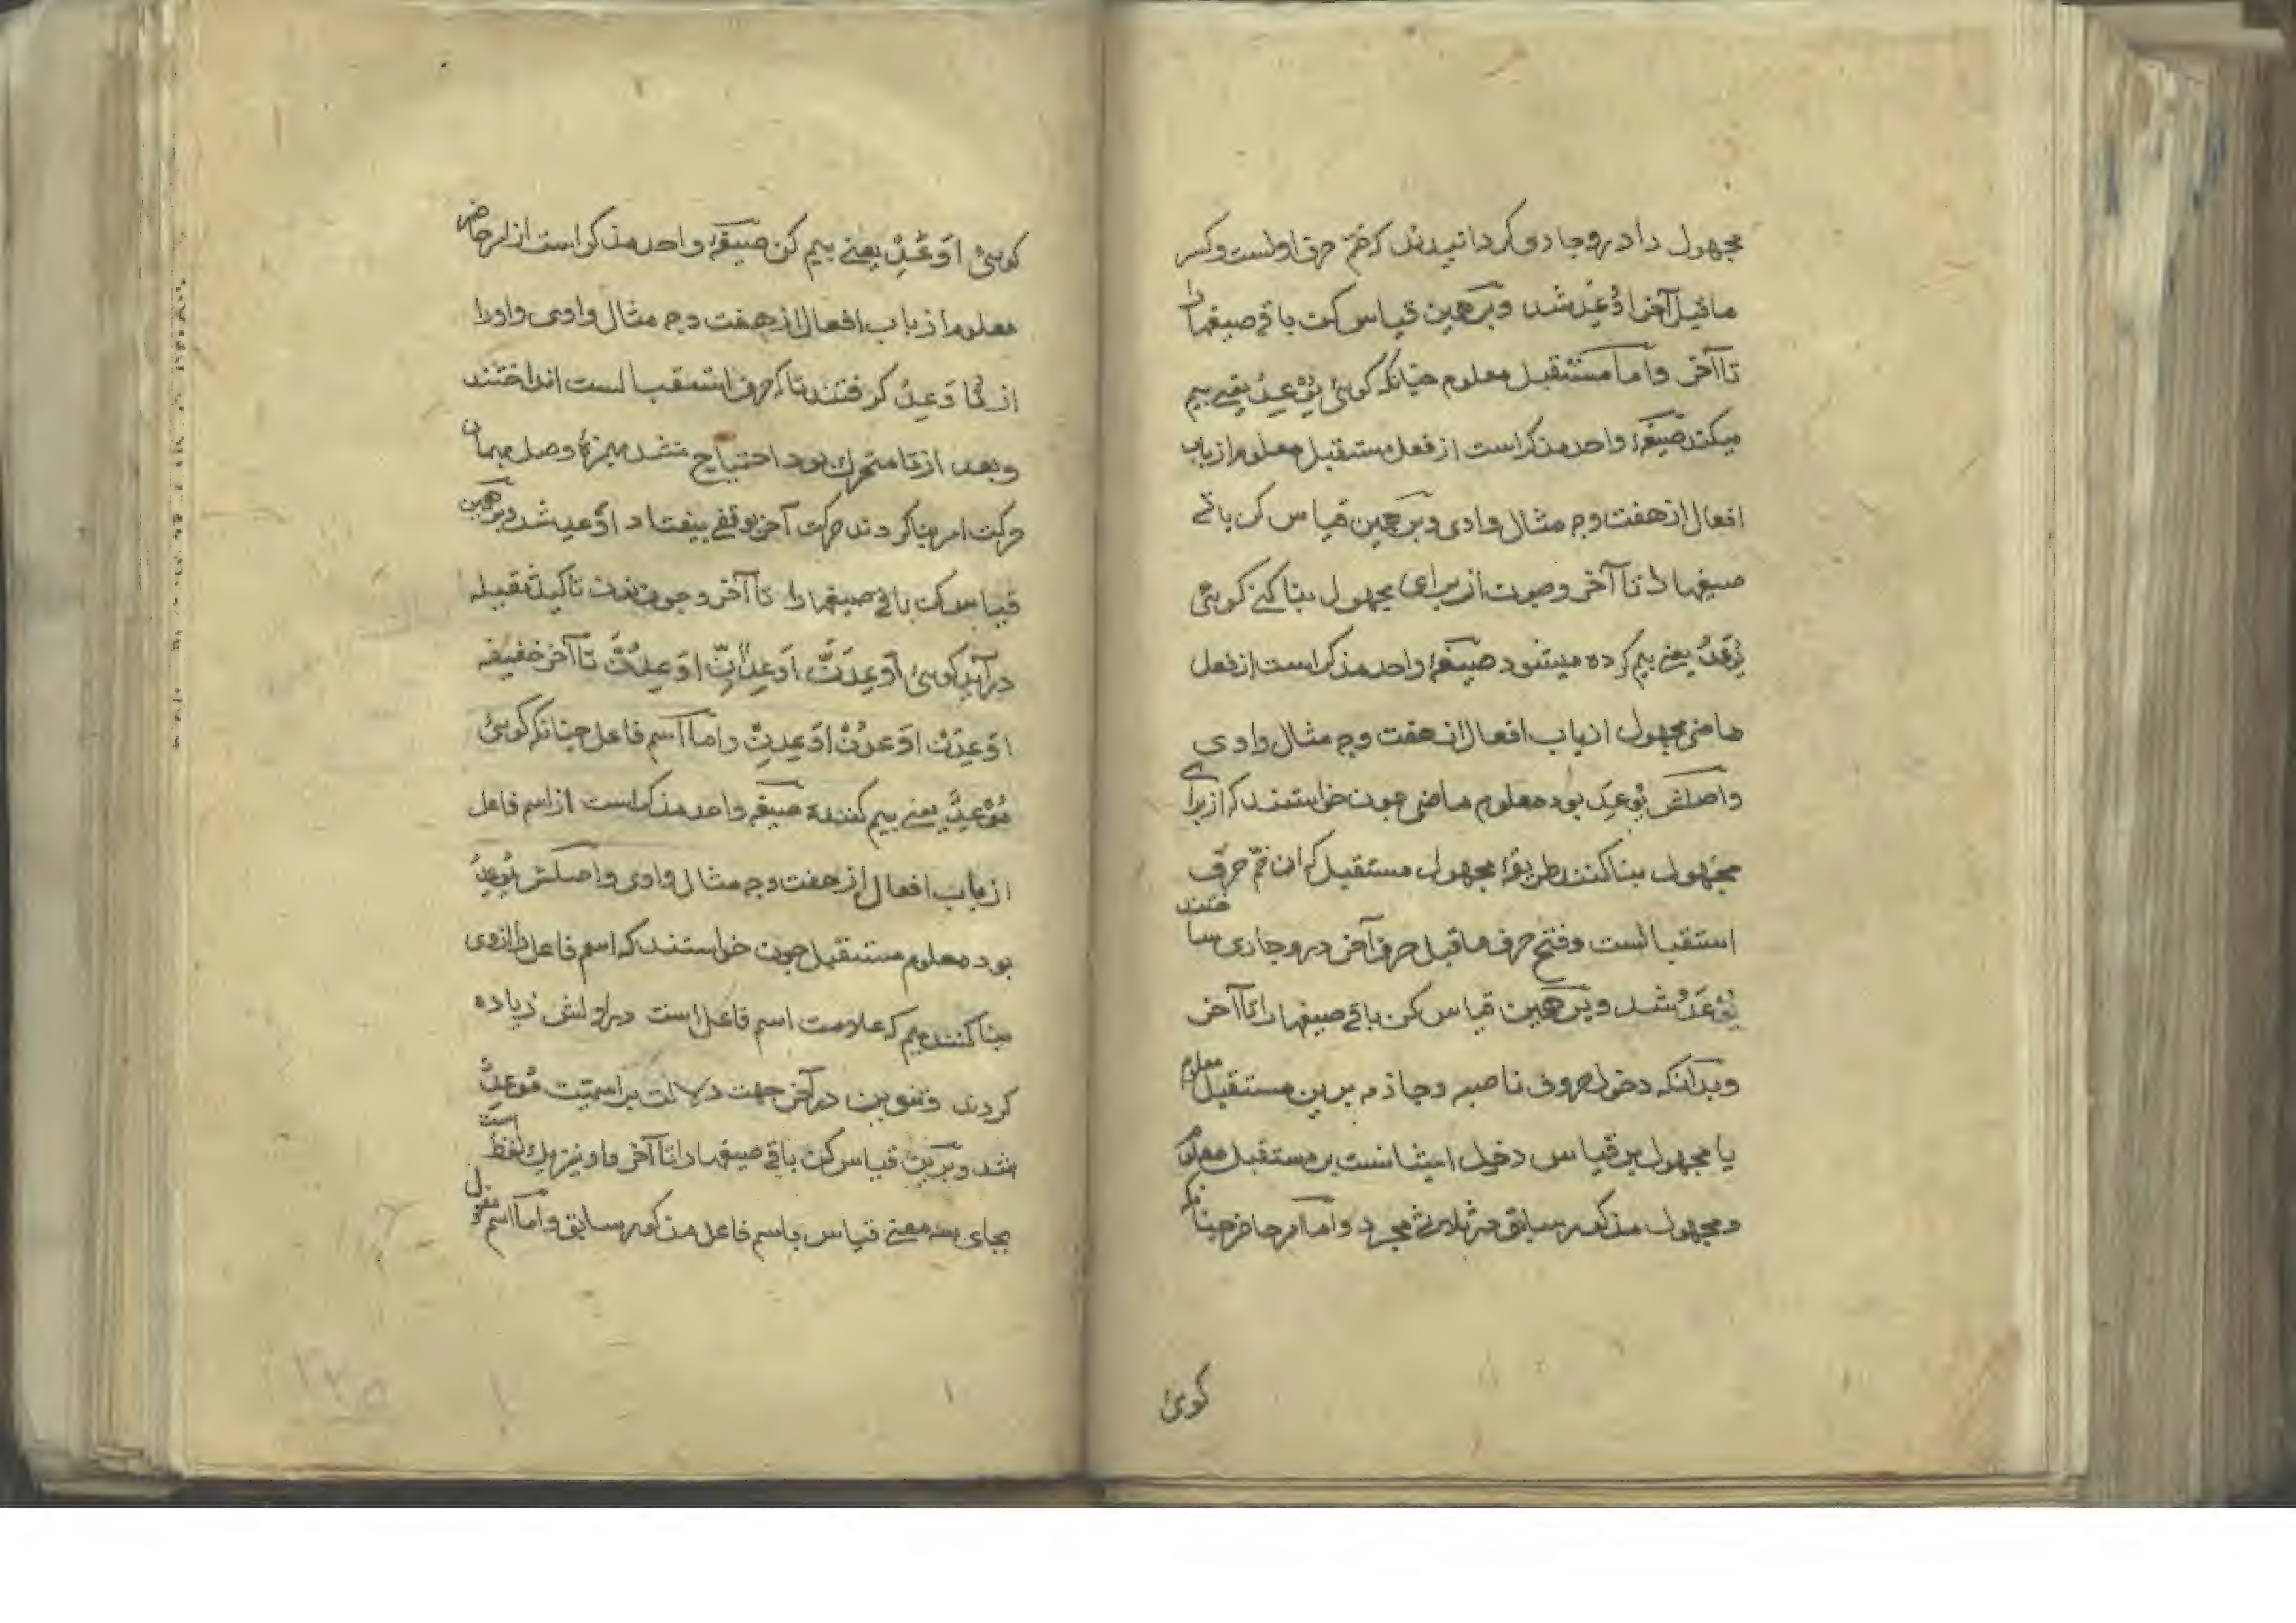 مجهول را درو جاری گردانیدند که ضم حرف اولست و کسر
ماقبل آخر اُوْعِدَ شد و برهمین قیاس کن باقی صیغها را
تا آخر و اما مستقبل معلوم چنانکه گوئی یُوْعِدُ یعنی بیم
میکند صیغهٔ واحد مذکر است از فعل مستقبل معلوم از باب
افعال از هفت وجه مثال وادی و برهمین قیاس کن باقی
صیغها را تا آخر و چون از برای مجهول بنا کنی گوئی
یُوْعَدُ یعنی بیم کرده میشود صیغهٔ واحد مذکر است از فعل
ماضی مجهول از باب افعال از هفت وجه مثال وادی
واصلش یُوْعِدُ بود معلوم ماضی چون خواستند که از برای
مجهول بنا کنند طریقهٔ مجهول مستقبل که آن ضم حرف
استقبالست و فتح حرف ماقبل حرف آخر درو جاری ساختند
یُوْعَدُ شد و برهمین قیاس کن باقی صیغها را تا آخر
وبدانکه دخول حروف ناصبه و جازمه برین مستقبل معلوم
یا مجهول بر قیاس دخول ایشانست بر مستقبل معلوم
و مجهول مذکور سابق در ثلاثی مجرد و اما امر حاضر چنانکه
گوئی
گوئی اَوْعِدْ یعنی بیم کن صیغهٔ واحد مذکر است از امر حاضر
معلوم از باب افعال از هفت وجه مثال وادی و او را
از تُاَوْعِدُ گرفتند تا که حرف استقبالست انداختند
وبعد از تا متحرک بود احتیاج نشد بهمزهٔ وصل بهمان
حرکت امر بنا کردند حرکت آخر بوقفی بیفتاد اَوْعِدْ شد و برهمین
قیاس کن باقی صیغها را تا آخر و چون نون تاکید ثقیله
در آید گوئی اَوْعِدَنَّ اَوْعِدَانِّ اَوْعِدُنَّ تا آخر خفیفه
اَوْعِدَنْ اَوْعِدُنْ اَوْعِدِنْ و اما اسم فاعل چنانکه گوئی
مُوْعِدٌ یعنی بیم کننده صیغه واحد مذکر است از اسم فاعل
از باب افعال از هفت وجه مثال وادی و اصلش یُوْعِدُ
بود معلوم مستقبل چون خواستند که اسم فاعل را ازوی
بنا کنند میم که علامت اسم فاعل است در اولش زیاده
کردند و تنوین در آخر جهت دلالت بر اسمیت مُوْعِدٌ
شد و برین قیاس کن باقی صیغها را تا آخر و او نیز یک لفظ است
بجای سه معنی قیاس باسم فاعل مذکور سابق و اما اسم مفعول